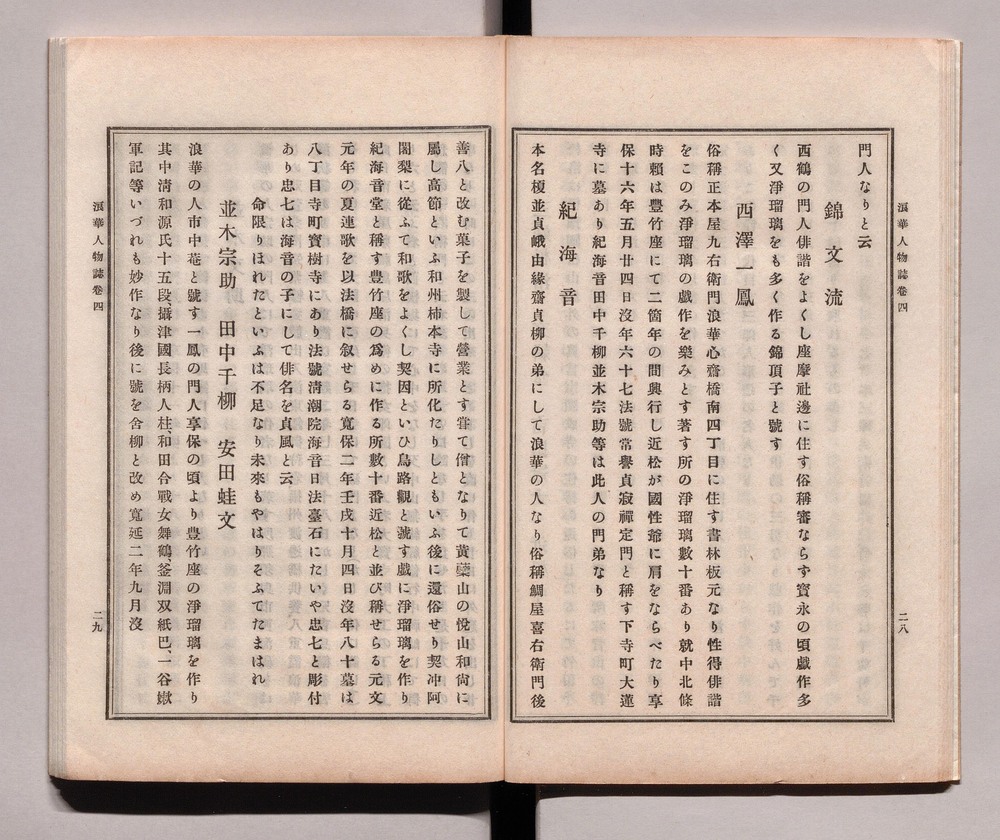 浪華人物誌卷四
二八
門人なりと云
錦文流
西鶴の門人俳諧をよくし座摩社邊に住す俗稱審ならず寳永の頃戲作多
く又淨瑠璃をも多く作る錦頂子と號す
西澤一鳳
俗稱正本屋九右衛門浪華心齋橋南四丁目に住す書林板元なり性得俳諧
をこのみ淨瑠璃の戲作を樂みとす著す所の淨瑠璃數十番あり就中北條
時賴は豐竹座にて二箇年の間興行し近松が國性爺に肩をならべたり享
保十六年五月廿四日沒年六十七法號常譽貞寂禪定門と稱す下寺町大蓮
寺に墓あり紀海音田中千柳並木宗助等は此人の門弟なり
紀海音
本名榎並貞峨由緣齋貞柳の弟にして浪華の人なり俗稱鯛屋喜右衛門後
善八と改む菓子を製して營業とす甞て僧となりて黃蘗山の悅山和尙に
屬し高節といふ和州柿本寺に所化たりしともいふ後に還俗せり契沖阿
闍梨に從ふて和歌をよくし契因といひ鳥路觀と號す戲に淨瑠璃を作り
紀海音堂と稱す豐竹座の爲めに作る所數十番近松と並び稱せらる元文
元年の夏連歌を以法橋に叙せらる寬保二年壬戌十月四日沒年八十墓は
八丁目寺町寳樹寺にあり法號淸潮院海音日法臺石にたいや忠七と彫付
あり忠七は海音の子にして俳名を貞風と云
命限りほれたといふは不足なり未來もやはりそふてたまはれ
並木宗助　田中千柳　安田蛙文
浪華の人市中菴と號す一鳳の門人享保の頃より豐竹座の淨瑠璃を作り
其中淸和源氏十五段、攝津國長柄人柱和田合戰女舞鶴、釜淵双紙巴、一谷嫩
軍記等いづれも妙作なり後に號を舍柳と改め寬延二年九月沒
浪華人物誌卷四
二九